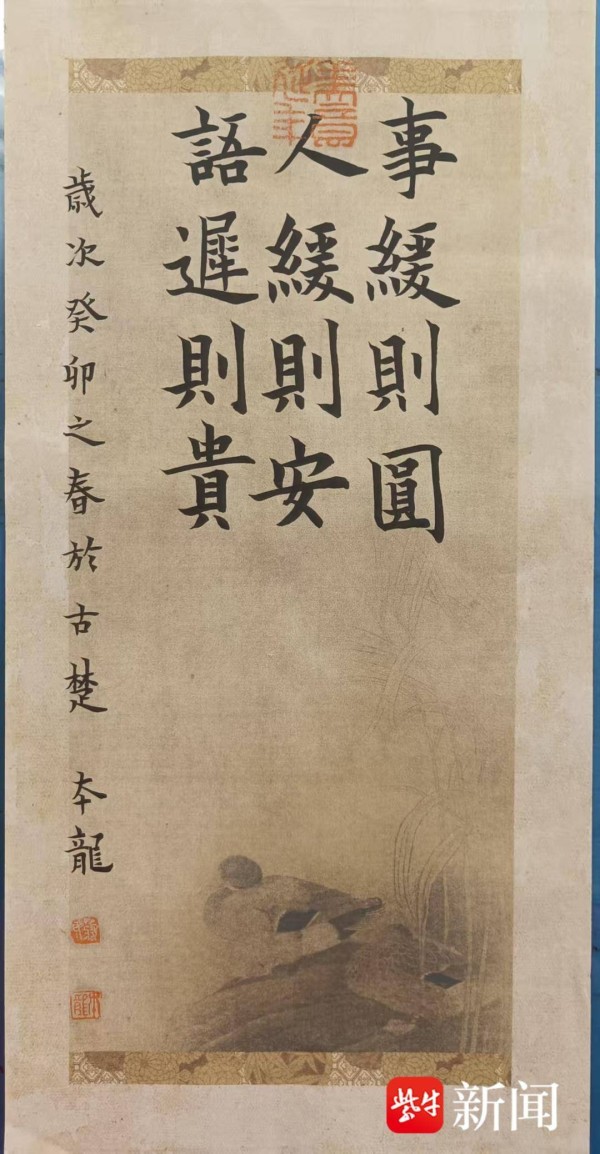 事緩則圓
人緩則安
語遲則貴
歲次癸卯之春於古楚 本龍
紫牛新闻